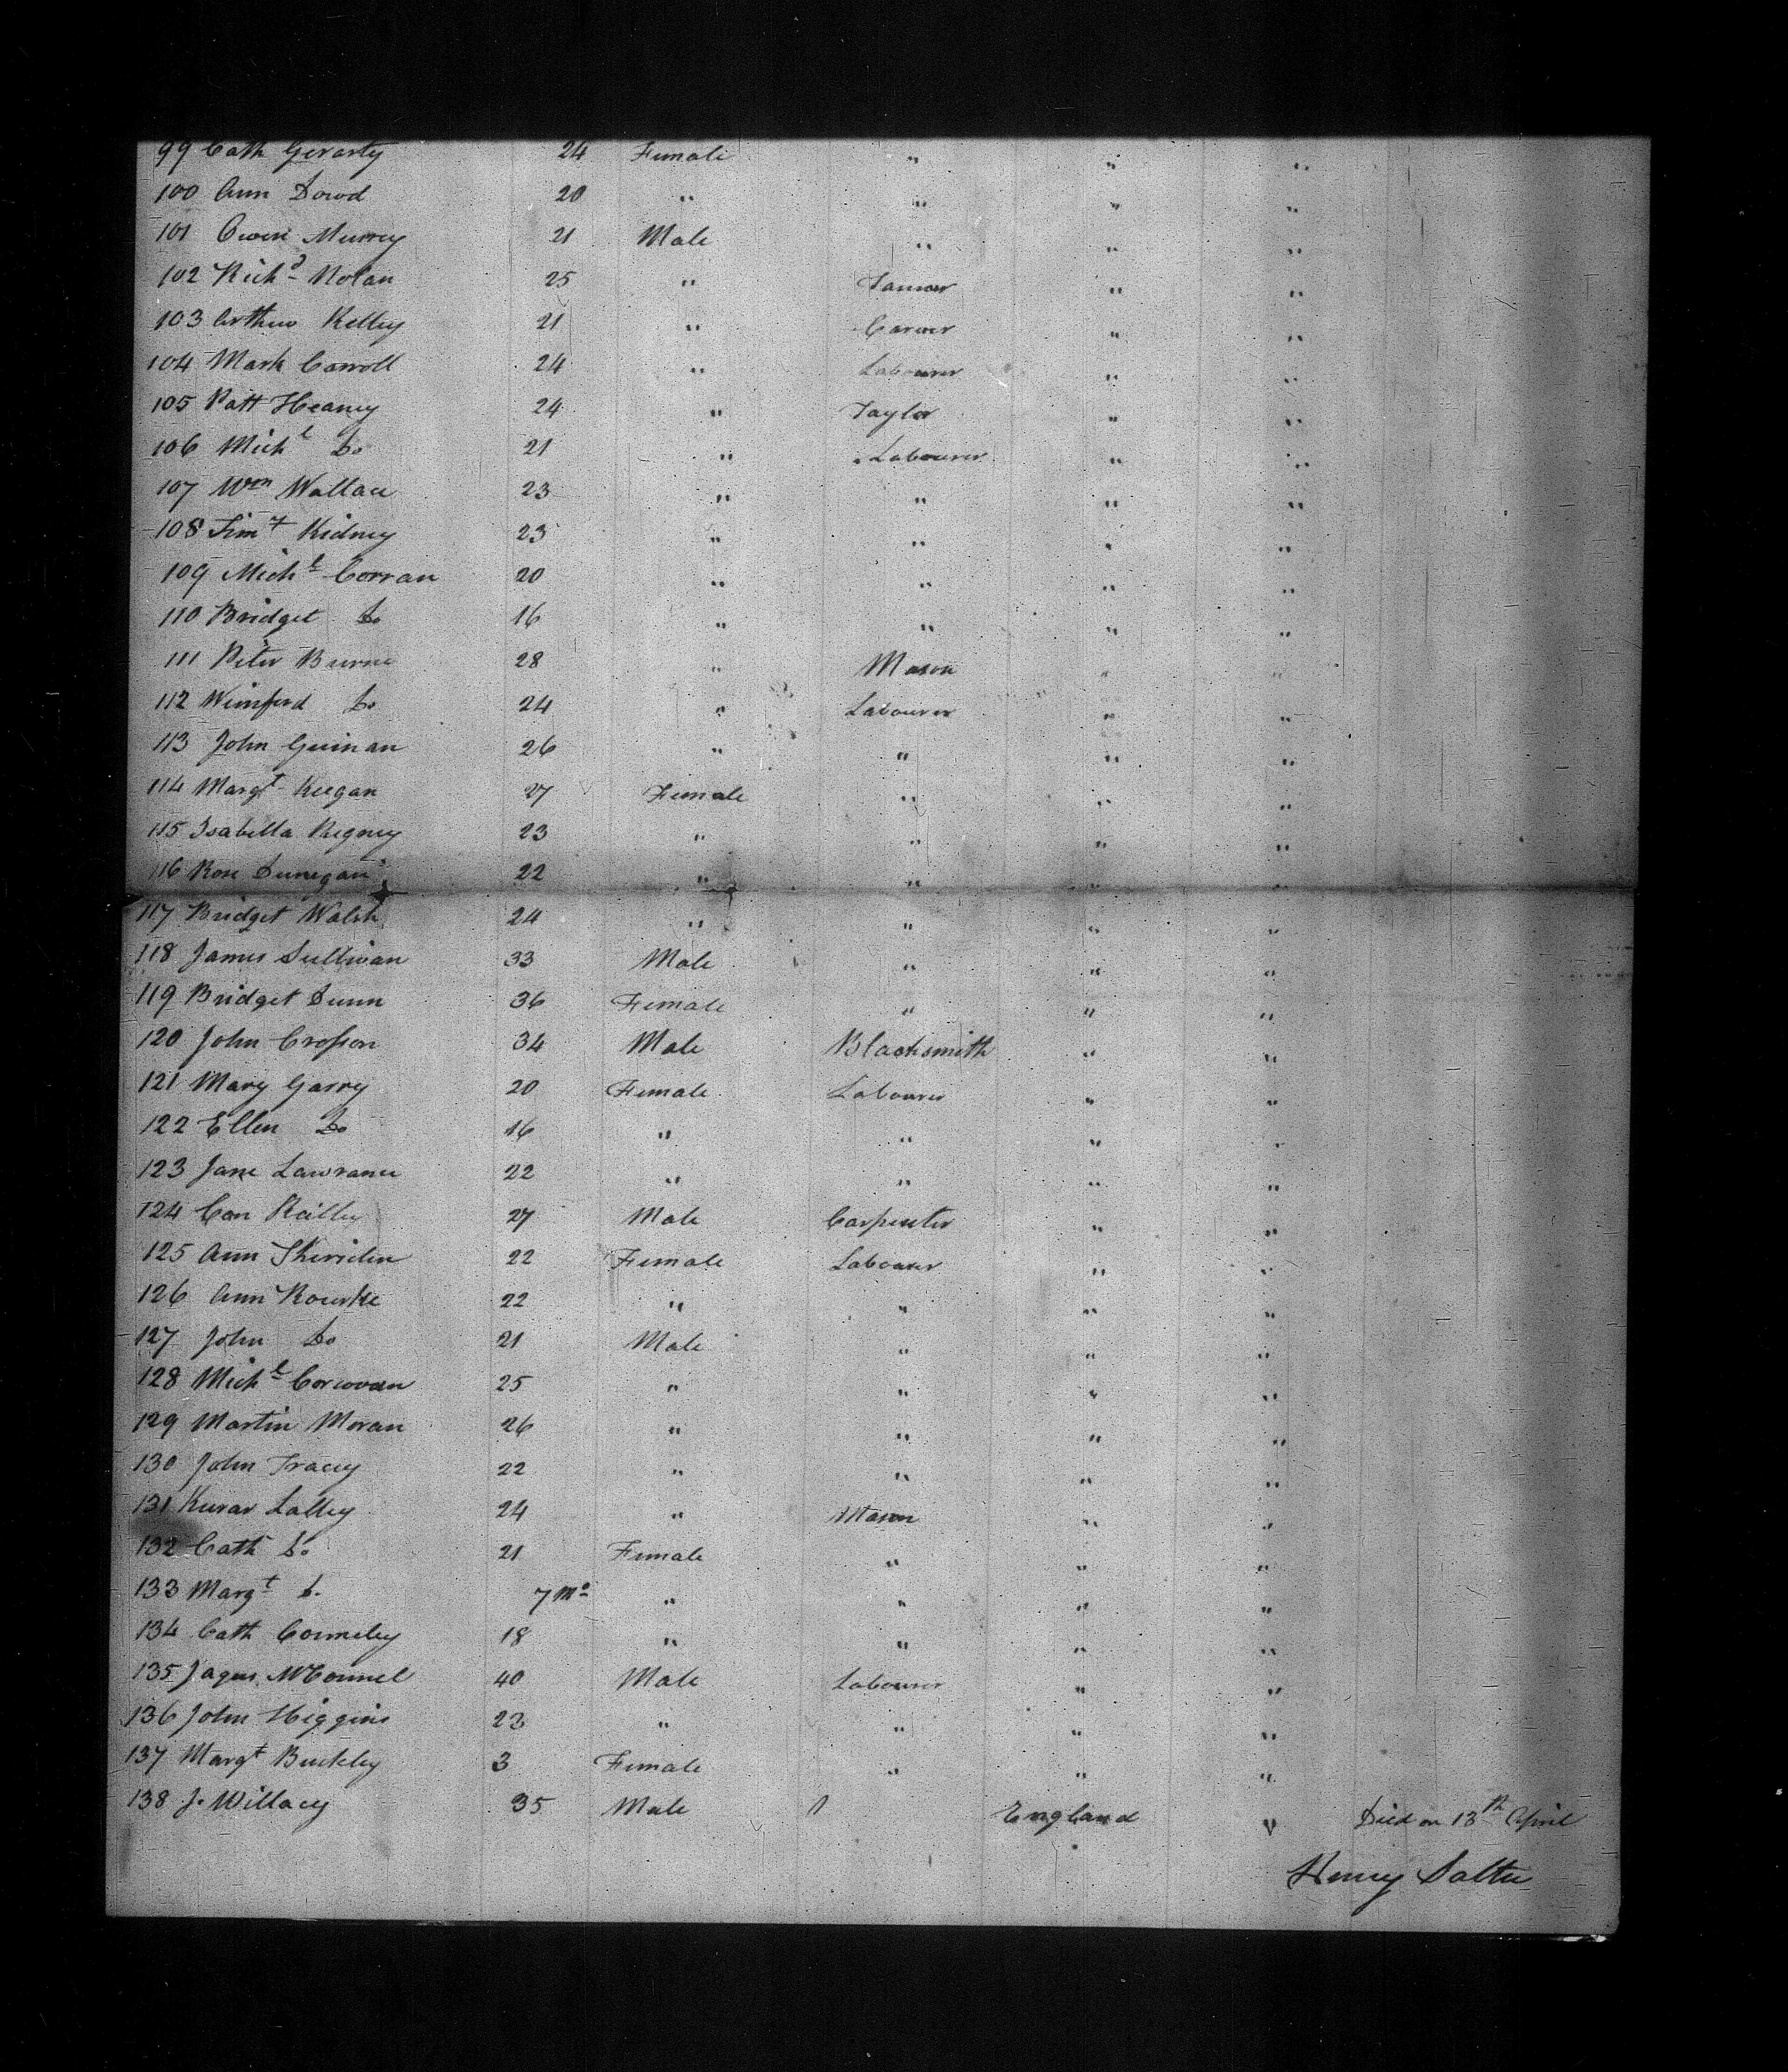 99 Cath Gerarty 24 Female " " "
100 Ann Dowd 20 " " " "
101 Owen Murrey 21 Male " " "
102 Richd Nolan 25 " Tanner " "
103 Arthur Kelley 21 " Carver " "
104 Mark Carroll 24 " Labourer " "
105 Patt Heaney 24 " Taylor " "
106 Michl Do 21 " Labourer " "
107 Wm Wallace 23 " " " "
108 Timy Kidney 23 " " " "
109 Michl Corran 20 " " " "
110 Bridget Do 16 " " " "
111 Peter Burne 28 " Mason " "
112 Winiford Do 24 " Labourer " "
113 John Guinan 26 " " " "
114 Margt Keegan 27 Female " " "
115 Isabella Regney 23 " " " "
116 Rose Dunegan 22 " " " "
117 Bridget Walsh 24 " " " "
118 James Sullivan 33 Male " " "
119 Bridget Dunn 36 Female " " "
120 John Crosson 34 Male Blacksmith " "
121 Mary Garry 20 Female Labourer " "
122 Ellen Do 16 " " " "
123 Jane Lawrance 22 " " " "
124 Con Reilley 27 Male Carpenter " "
125 Ann Sherriden 22 Female Labourer " "
126 Ann Rourke 22 " " " "
127 John Do 21 Male " " "
128 Michl Corcoran 25 " " " "
129 Martin Moran 26 " " " "
130 John Tracey 22 " " " "
131 Lalley 24 " Mason " "
132 Cath Do 21 Female " " "
133 Margt D. 7 Mo " " " "
134 Cath Conneley 18 " " " "
135 McConnel 40 Male Labourer " "
136 John Higgins 23 " " " "
137 Margt Buckley 3 Female " " "
138 J. Willacy 35 Male " England " Died on 13th April
Henry Salter